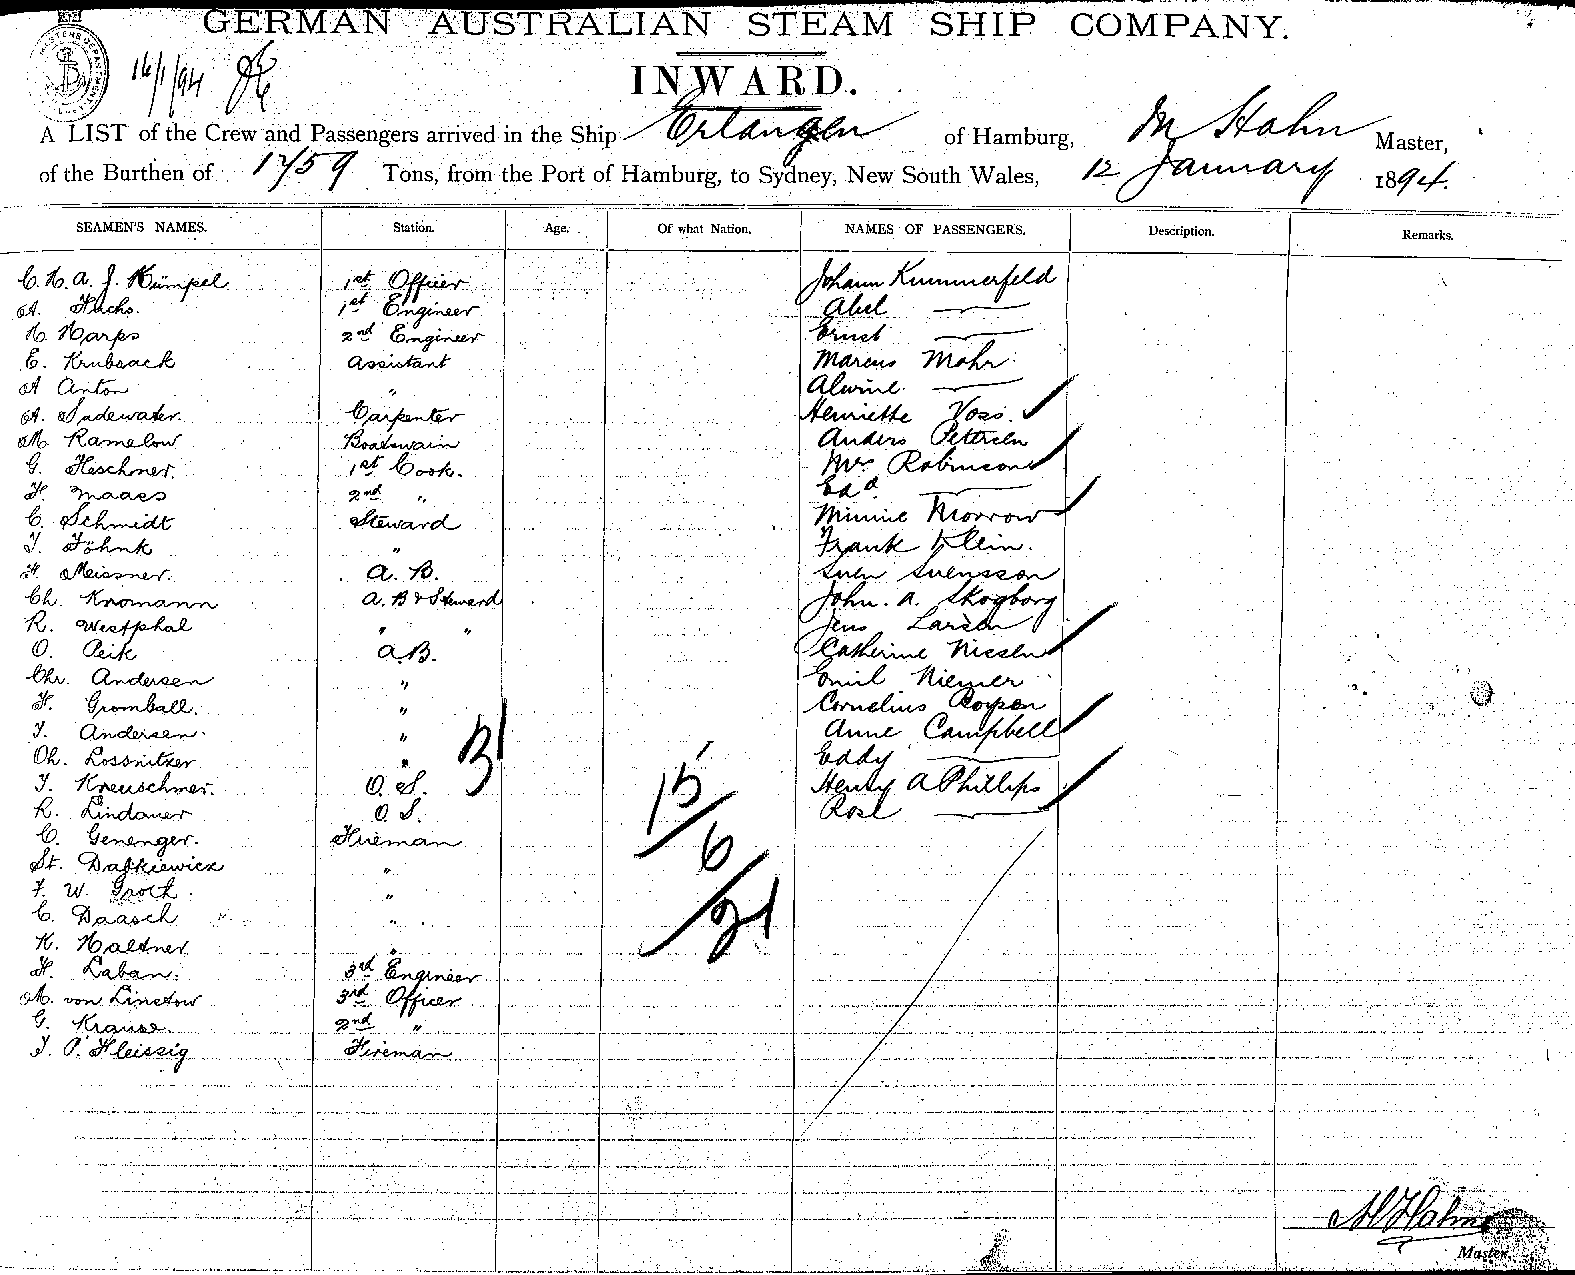 GERMAN AUSTRALIAN STEAM SHIP COMPANY.
16/1/94
INWARD.
A LIST of the Crew and Passengers arrived in the Ship Erlangen of Hamburg, M Hahn Master,
of the Burthen of 1759 Tons, from the Port of Hamburg, to Sydney, New South Wales, 12 January 1894.
SEAMEN'S NAMES. Station. Age. Of what Nation. NAMES OF PASSENGERS. Description. Remarks.
C. H. A. J. Kümpel 1st Officer Johann Kummerfeld
A. Fuchs. 1st Engineer Abel —
H. Harps 2nd Engineer Ernst —
E. Krubsack Assistant Marcus Mohr
A Anton " Alwine —
A. Sadewater. Carpenter Henriette Voss.
M. Ramelow Boatswain Anders Pettersen
G. Heschner. 1st Cook. Mrs Robinson
F. Maass 2nd " Edd. —
C. Schmidt Steward Minnie Morrow
J. Föhnk " Frank Klein.
F. Meissner. A. B. Sven Svensson
Ch. Kromann A. B & Steward John. A. Skogborg
R. Westphal " " Jens Larsen
O. Peik A.B. Catherine Niesen
Chr. Andersen " Emil Niemer
F. Gromball. " Cornelius
J. Andersen. " Anne Campbell
Ch. Lossnitzer " Eddy —
J. Kreuschmer. O. S. Henry A Phillips
R. Lindauer O. S. Rose —
C. Genenger. Fireman
St. Dalkiewicz "
F. W. Groth. "
C. Daasch "
K. Haldner "
F. Laban. 3rd Engineer
M. von Linstow 3rd Officer
G. Krause. 2nd "
J. P. Fleissig Fireman
31
15
6
/21
M Hahn
Master.